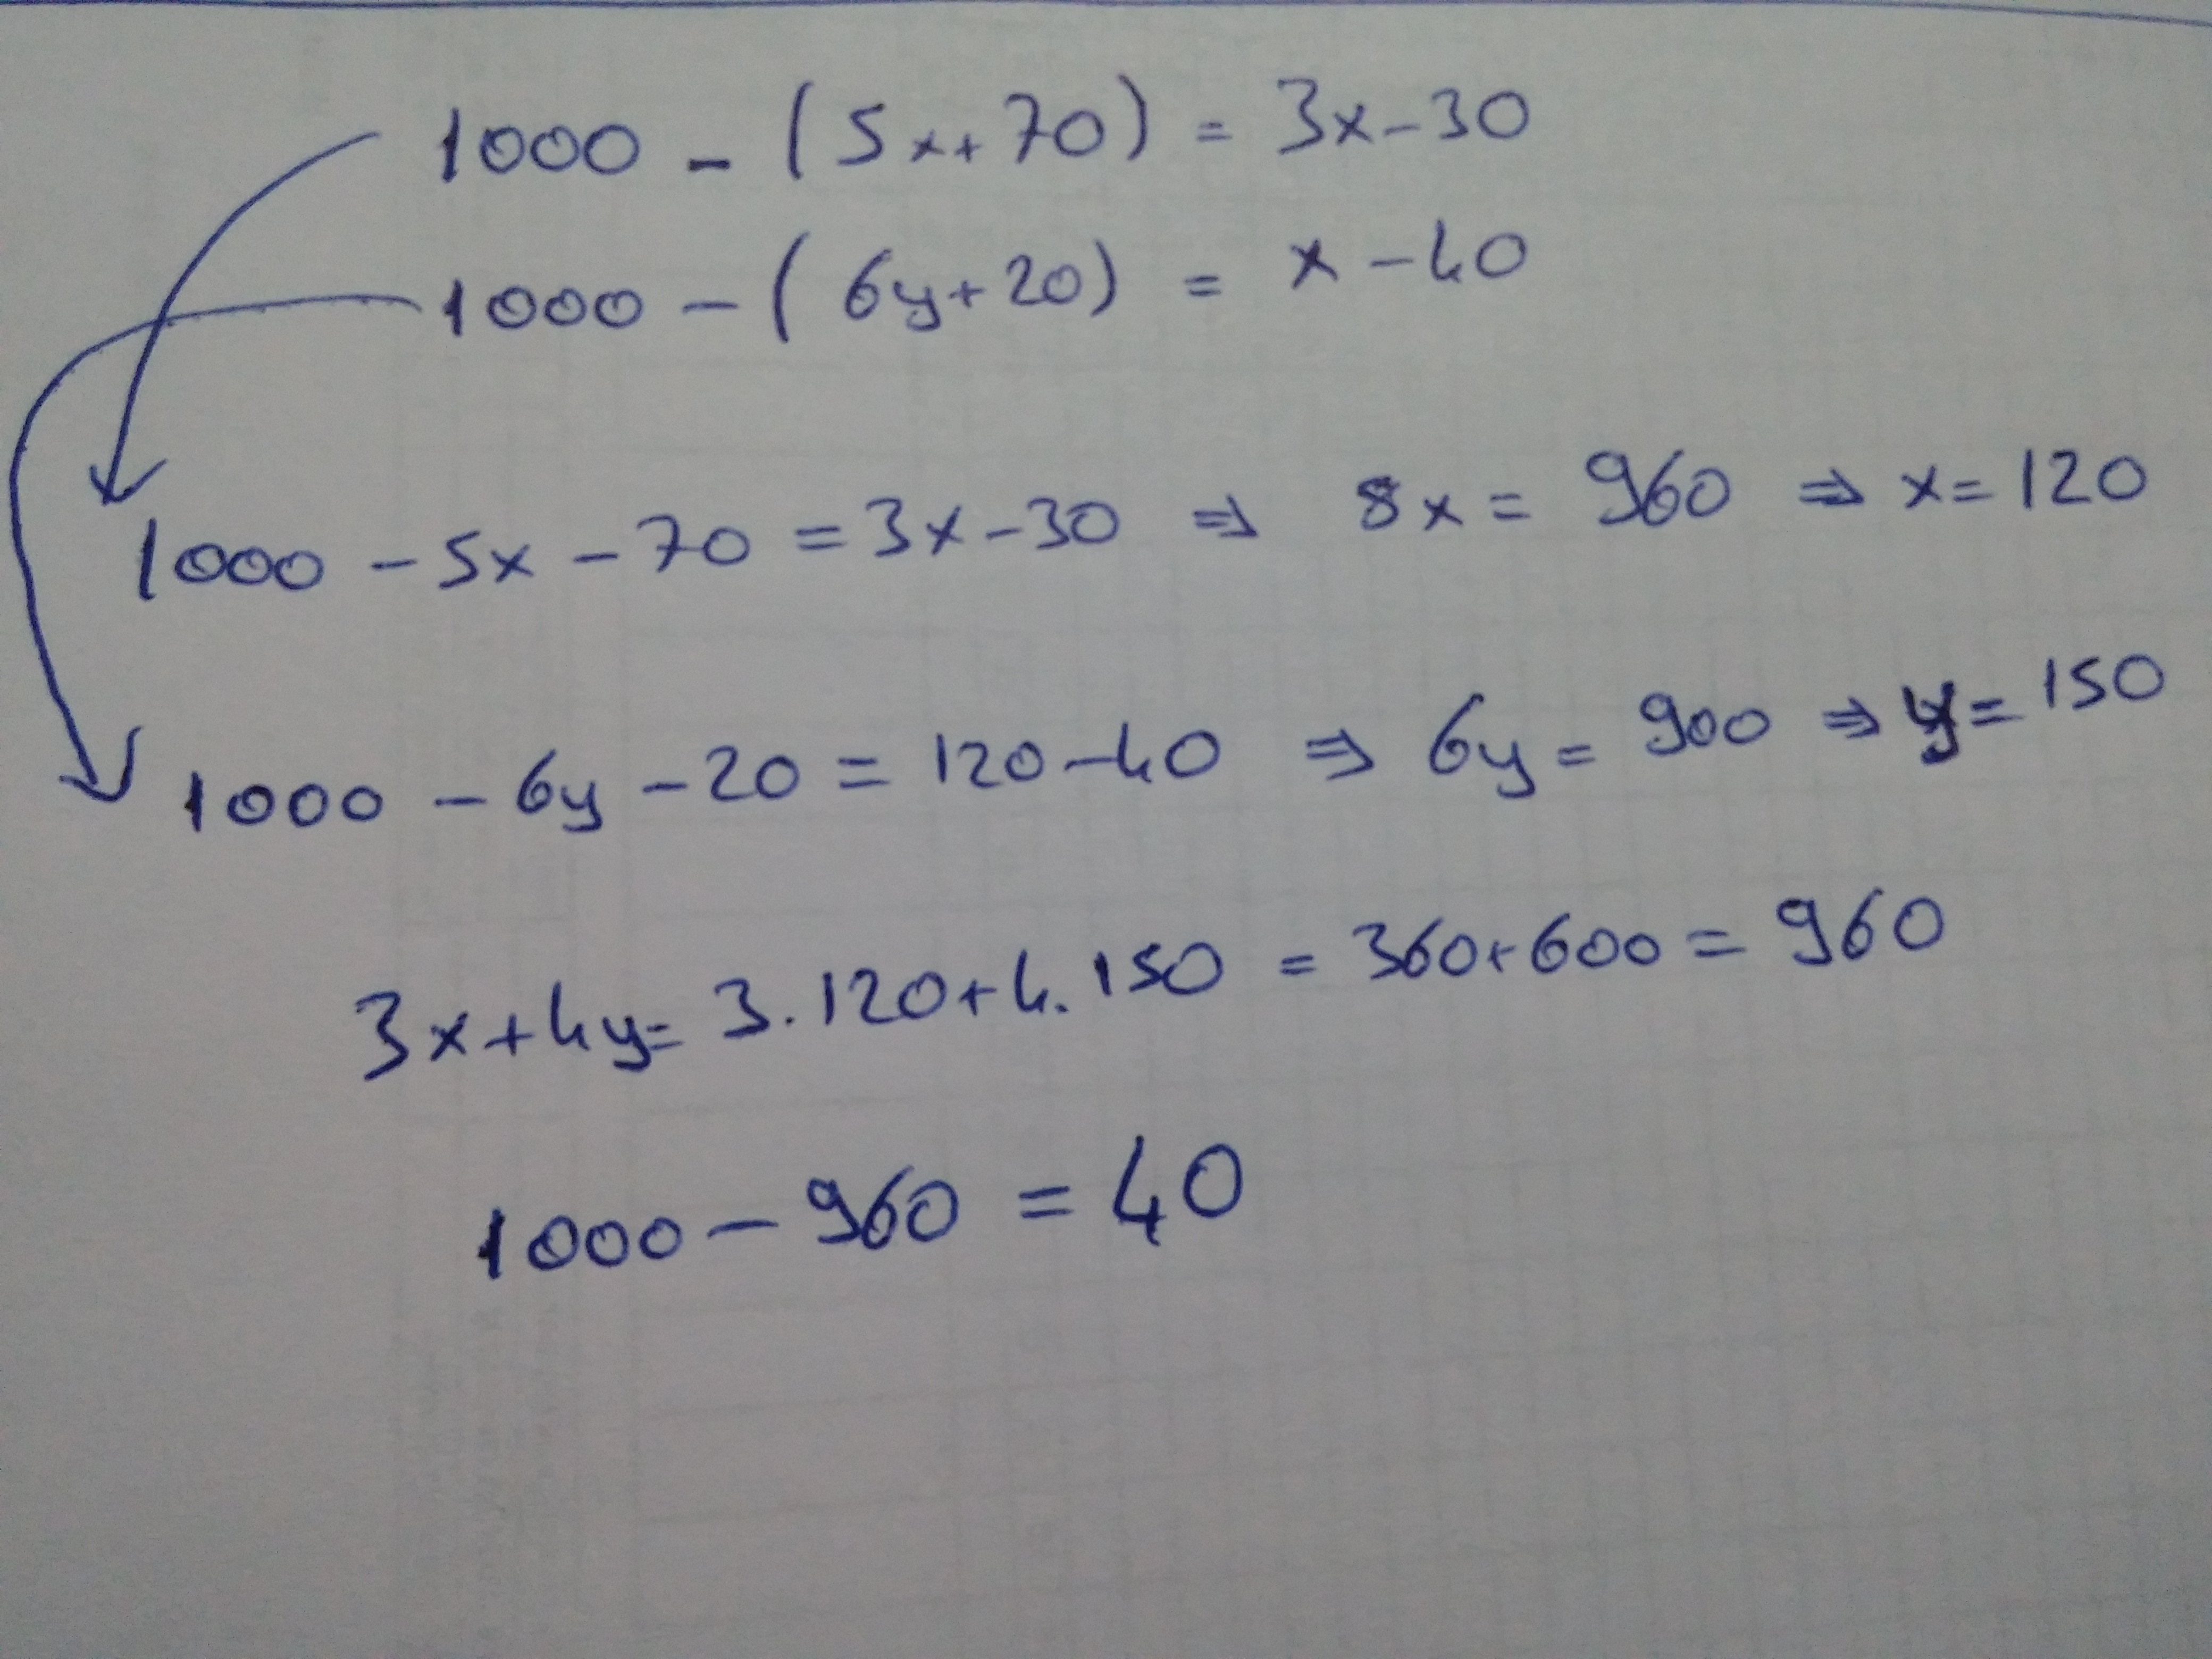 1000 - (5x+70) = 3x-30
1000 - (6y+20) = x-40
1000 - 5x - 70 = 3x-30 ⇒ 8x = 960 ⇒ x = 120
1000 - 6y - 20 = 120-40 ⇒ 6y = 900 ⇒ y = 150
3x+4y = 3.120+4.150 = 360+600 = 960
1000 - 960 = 40